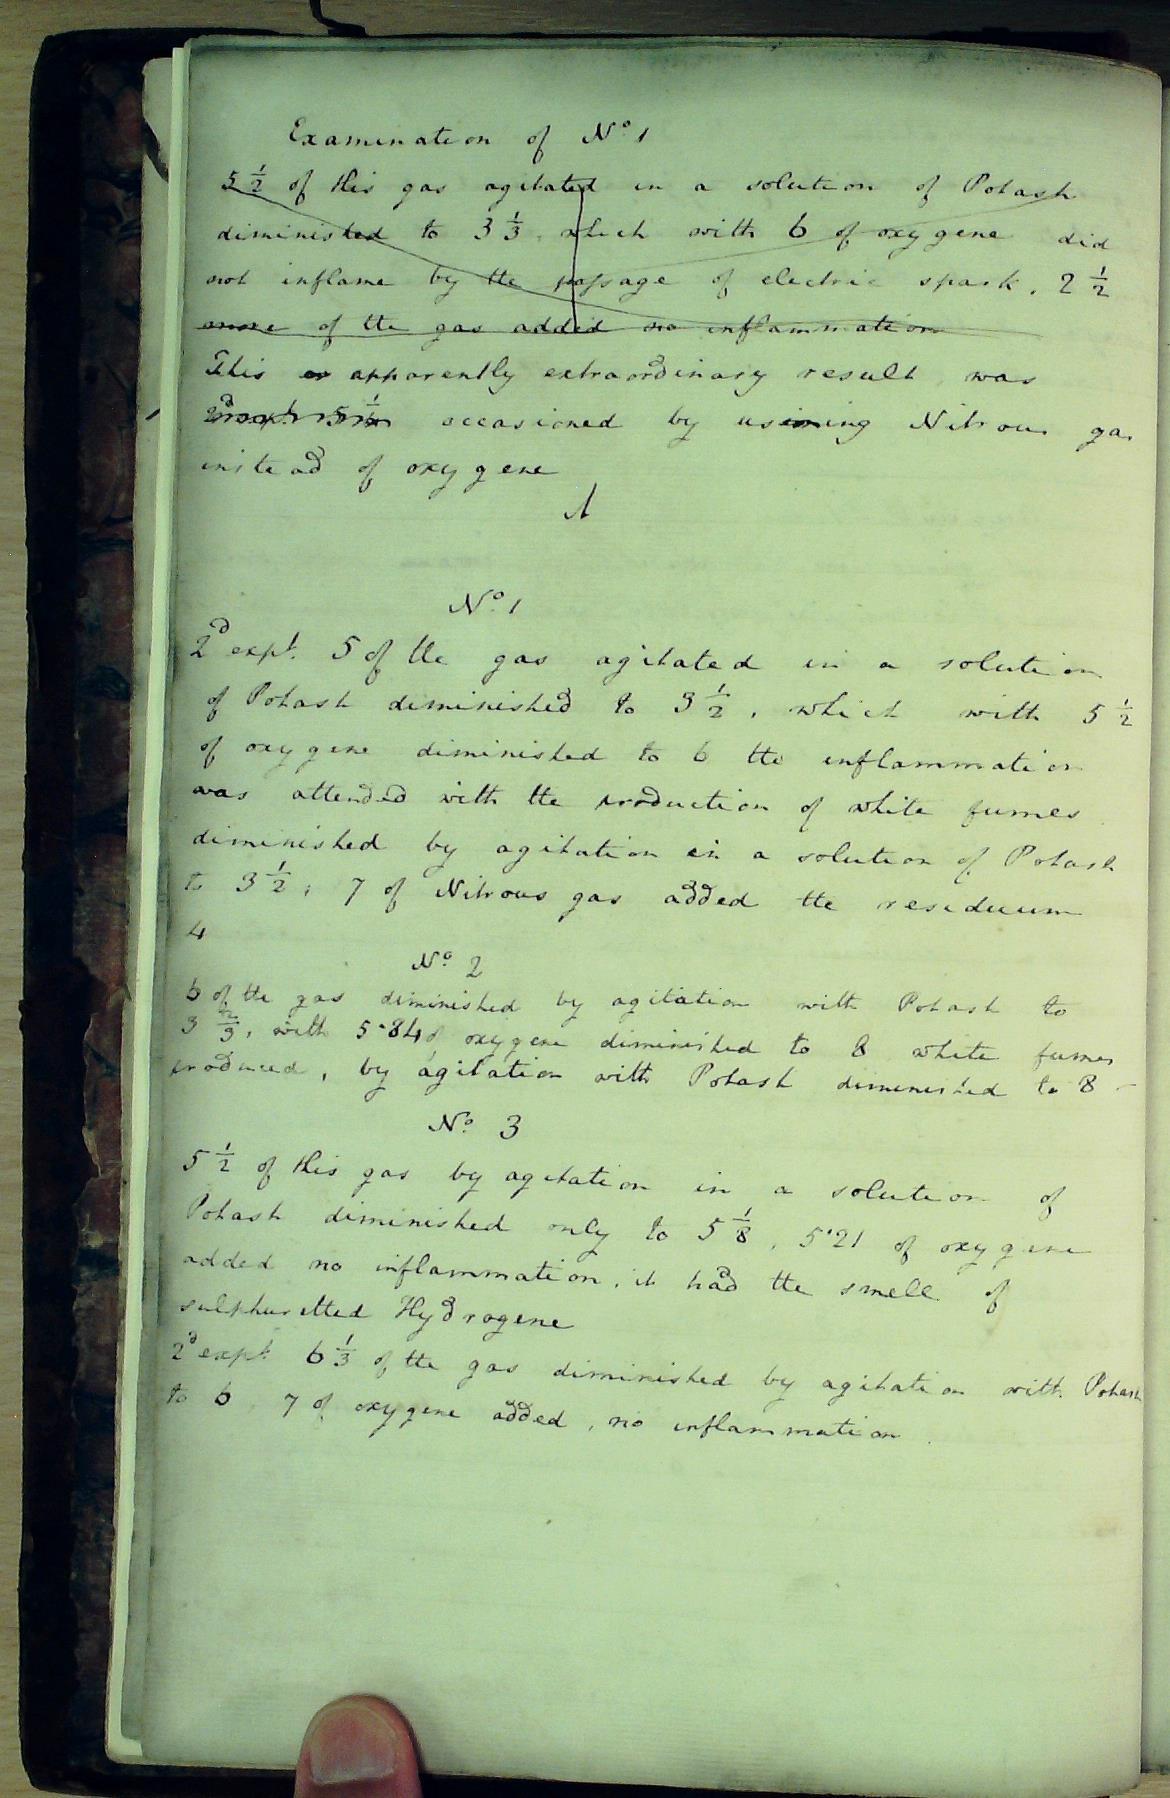 Examination of No 1
5 1/2 of this gas agitated in a solution of Potash
diminished to 3 1/3. which with 6 of oxygene did
not inflame by the passage of electric spark. 2 1/2
more of the gas added no inflammation
This apparently extraordinary result was
2d expt 5 1/2 occasioned by using Nitrous gas
instead of oxygene
No. 1
2d expt. 5 of the gas agitated in a solution
of Potash diminished to 3 1/2, which with 5 1/2
of oxygene diminished to 6 the inflammation
was attended with the production of white fumes
diminished by agitation in a solution of Potash
to 3 1/2; 7 of Nitrous gas added the residuum
4
No. 2
6 of the gas diminished by agitation with Potash to
3 2/3, with 5.84 of oxygene diminished to 8 white fumes
produced, by agitation with Potash diminished to 8 -
No. 3
5 1/2 of this gas by agitation in a solution of
Potash diminished only to 5 1/8, 5.21 of oxygene
added no inflammation, it had the smell of
sulphuretted Hydrogene
2d expt. 6 1/3 of the gas diminished by agitation with Potash
to 6 7 of oxygene added, no inflammation.